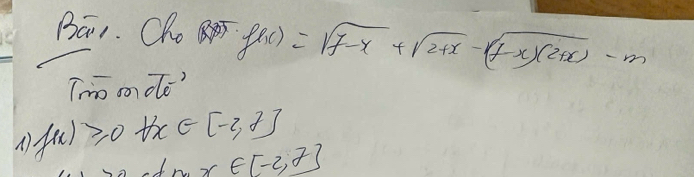 Bài 1. Cho f(x) = √7-x + √2+x - √(7-x)(2+x) - m
Tìm m để
1) f(x) ≥ 0 ∀x ∈ [-2,7]
x ∈ [-2,7]